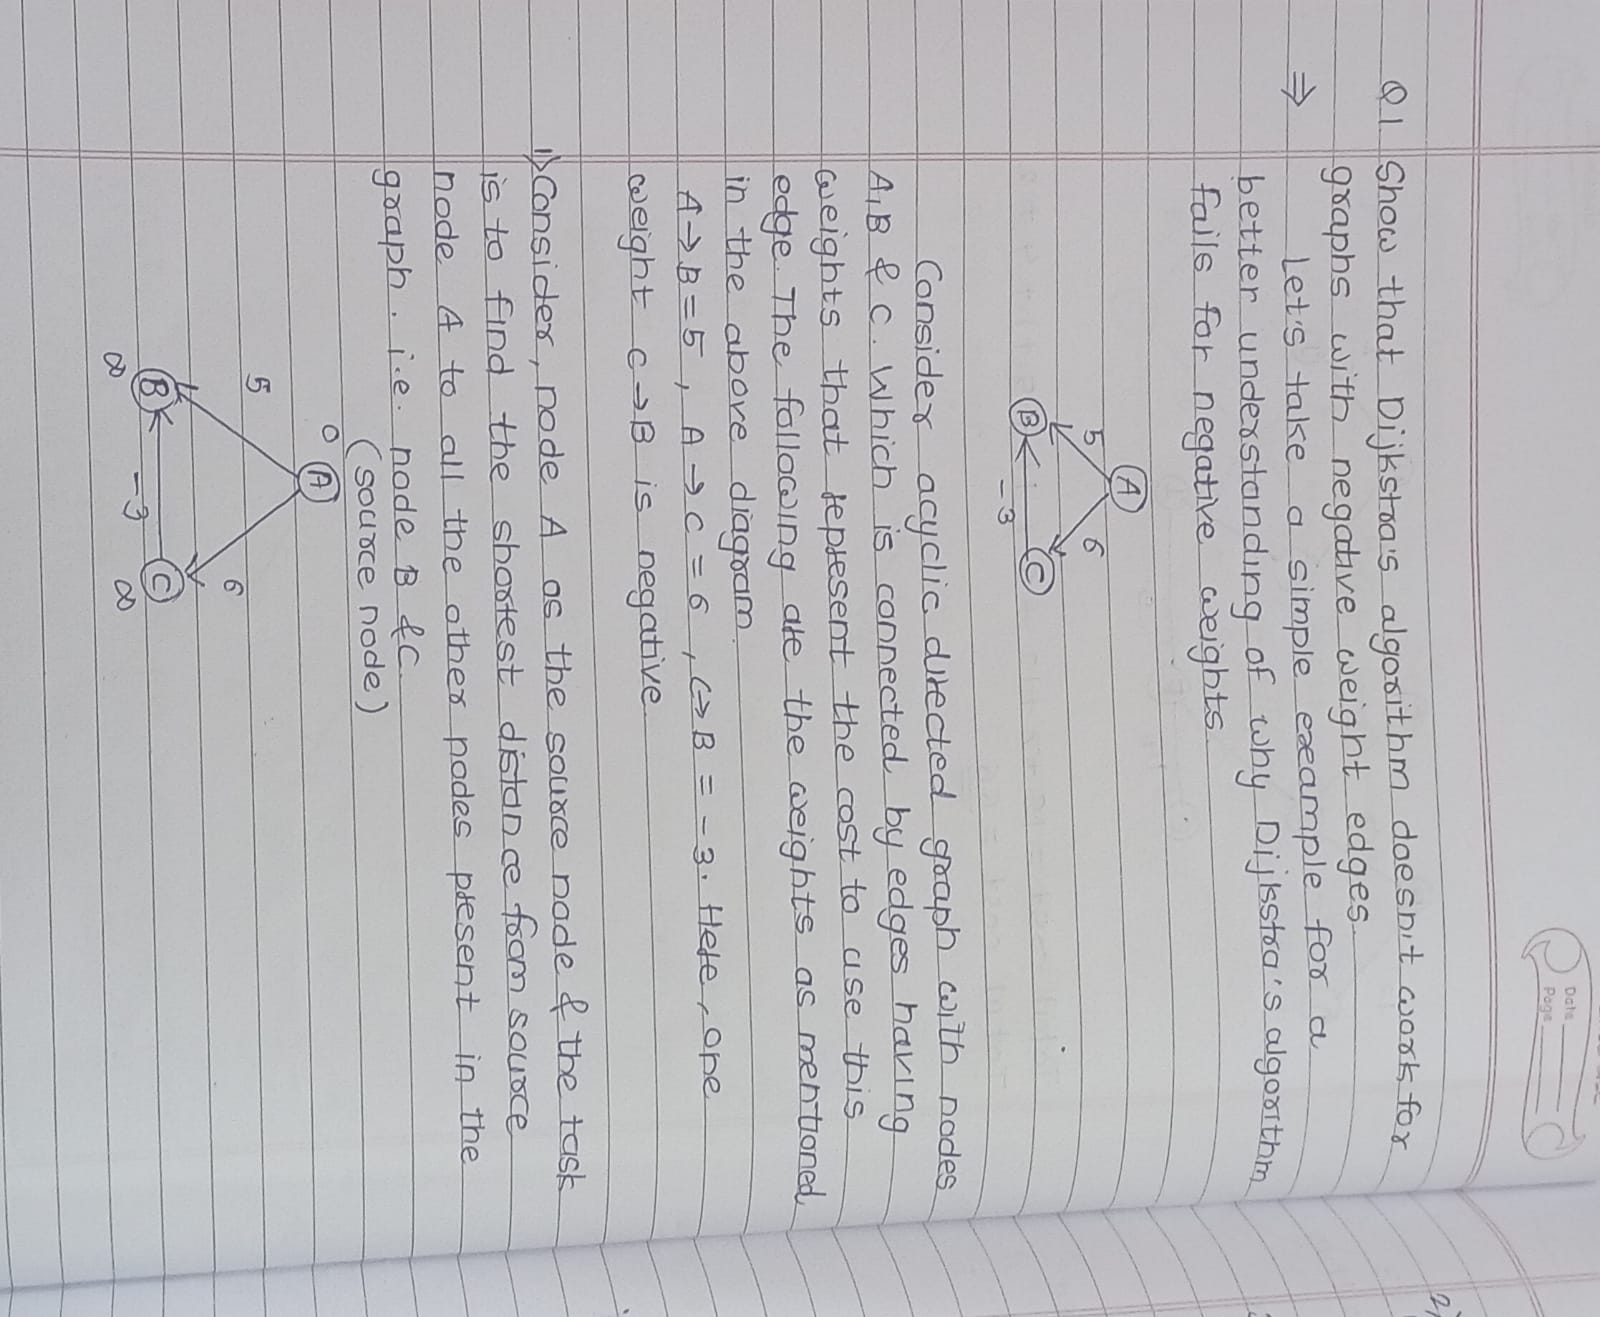 Date
Page
2)
Q1 Show that Dijkstra's algorithm doesn't work for
graphs with negative weight edges.
⇒ Let's take a simple exeample for a
better understanding of why Dijkstra's algorithm
fails for negative weights.
A
5 6
B C
-3
Consider acyclic directed graph with nodes
A, B & C. Which is connected by edges having
weights that represent the cost to use this
edge. The following are the weights as mentioned
in the above diagram.
A → B = 5, A → C = 6, C → B = -3. Here, one
weight C → B is negative.
1) Consider, node A as the source node & the task
is to find the shortest distance from source
node A to all the other nodes present in the
graph. i.e. node B & C.
(source node)
0 A
5
6
B C
-3
∞ ∞